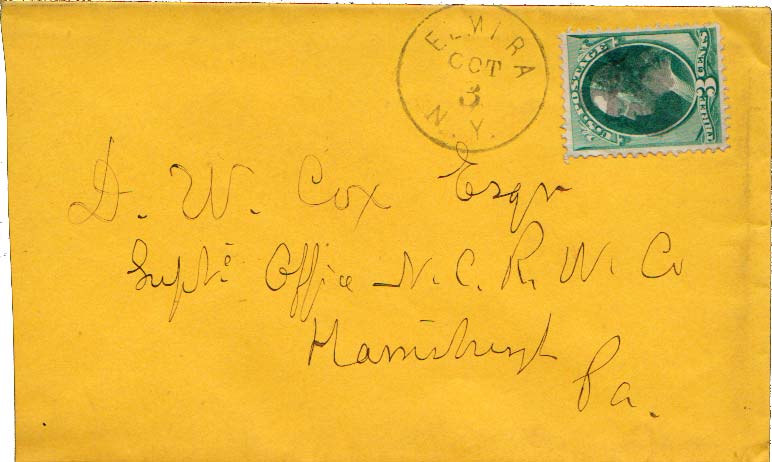 ELMIRA
OCT
3
N.Y.
U.S. POSTAGE
3
CENTS
D. W. Cox Esqr
Supts Office N. C. R. W. Co
Harrisburgh
Pa.